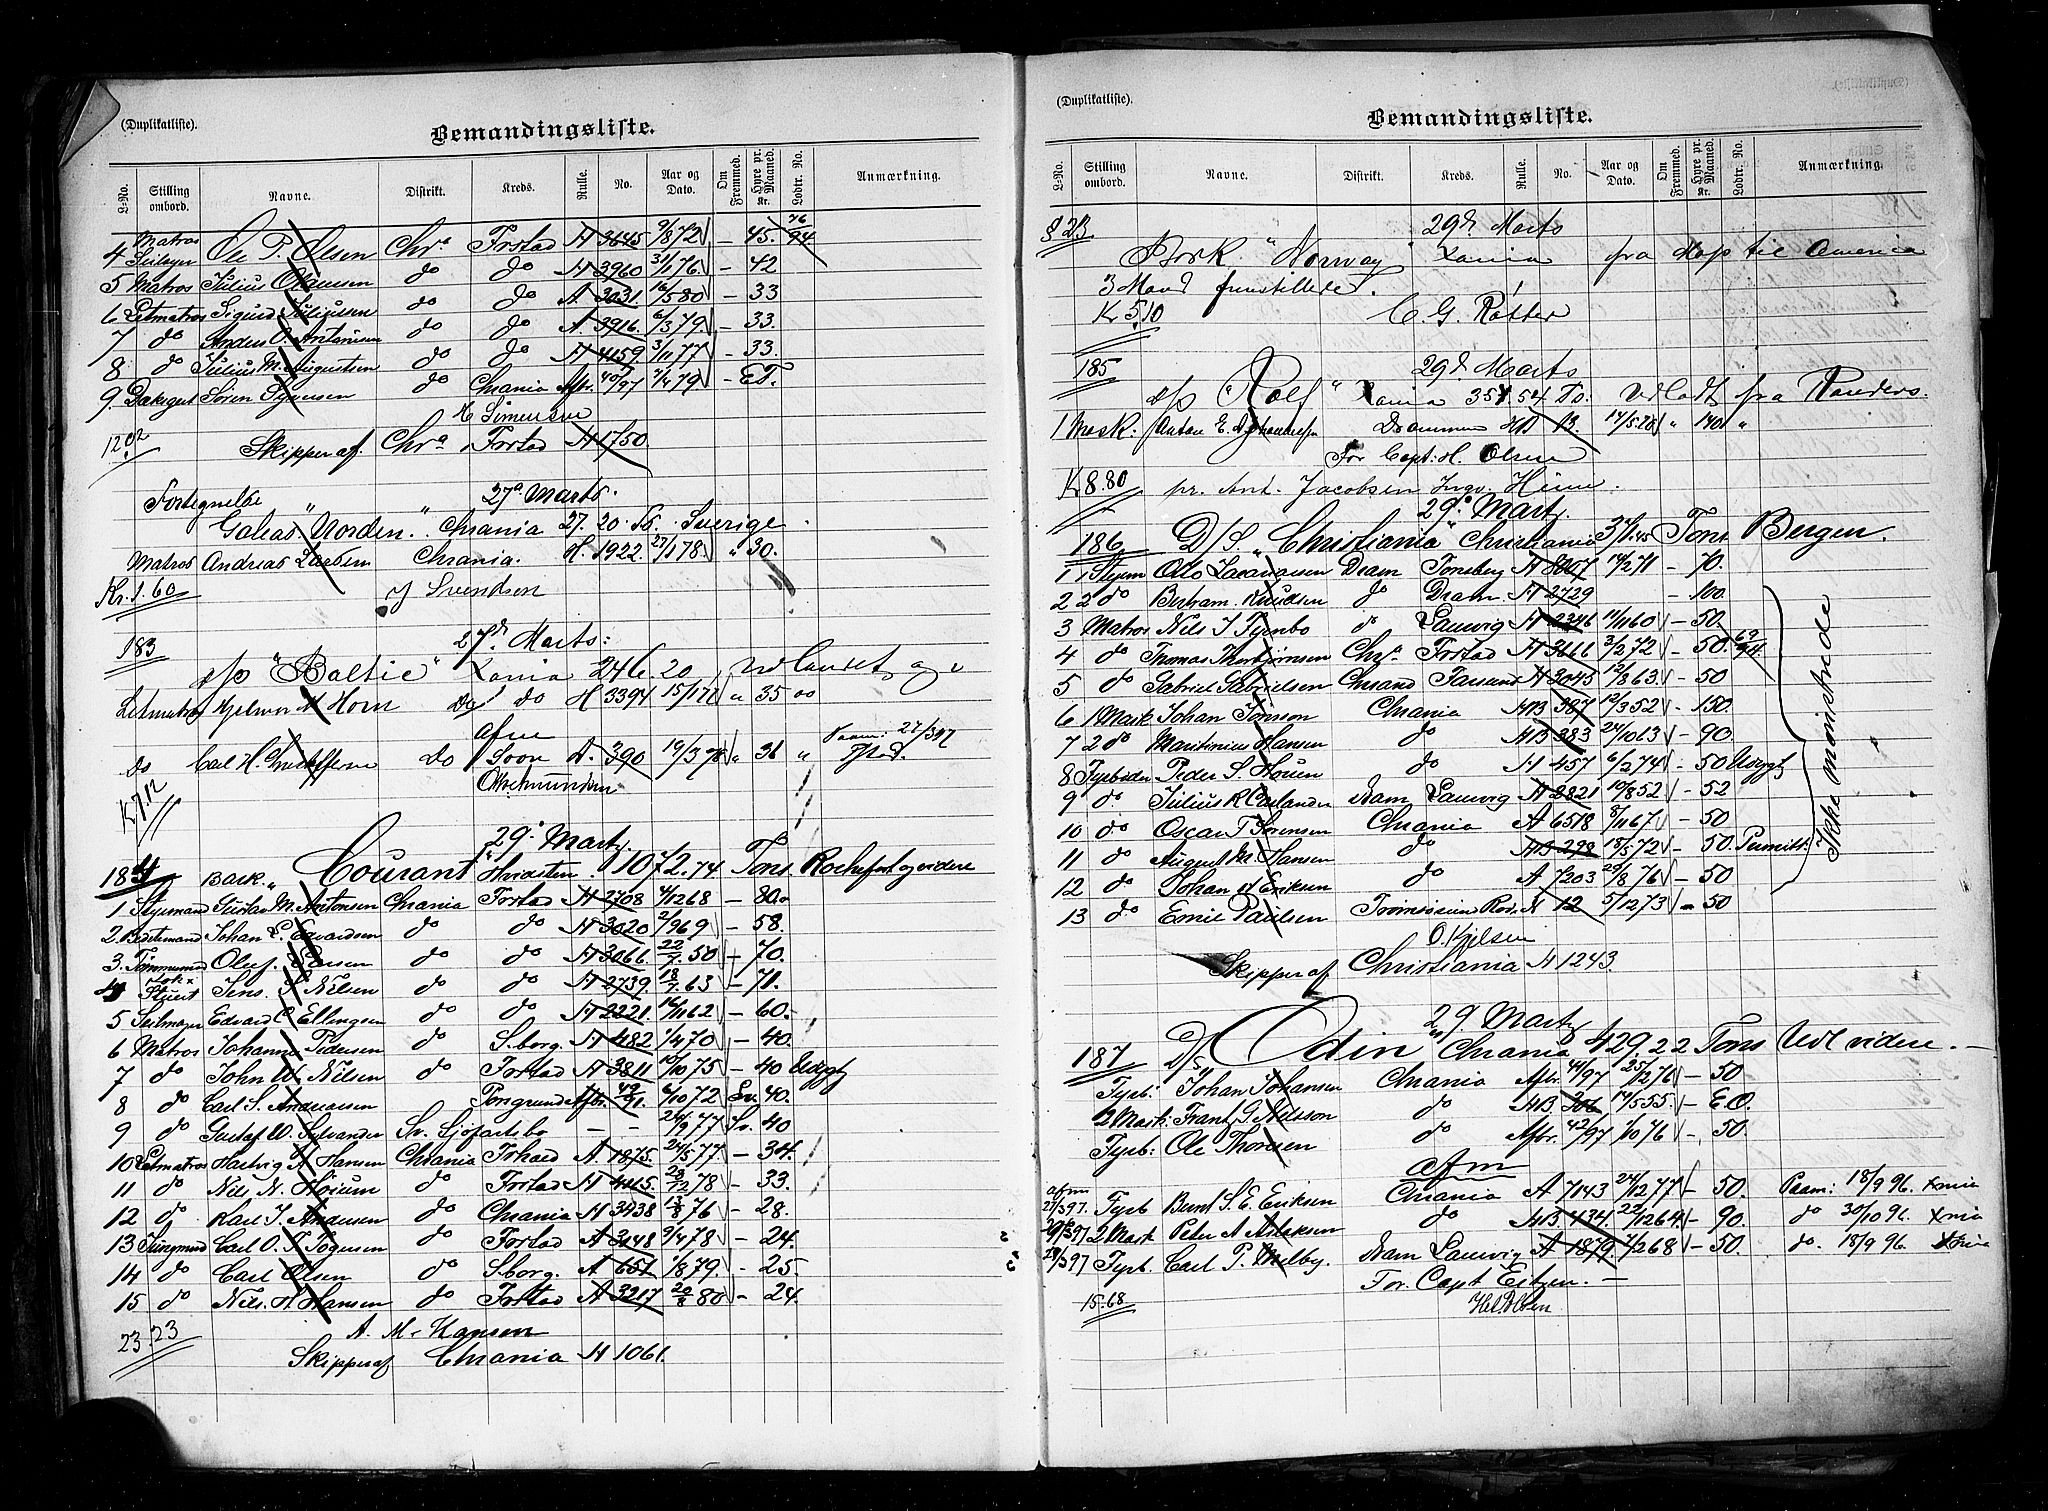 (Duplikatliste).
Bemandingsliste.
L-No. Stilling ombord. Navne. Distrikt. Kreds. Rulle. No. Aar og Dato. Om Fremmed. Hyre pr. Maaned. Kr. Lodtr. No. Anmærkning.
4 Matros Seilmgr Ole P. Olsen Chra Frstad H 3645 9/8 72 – 45. 76/94
5 Matros Julius Olausen do do H 3960 31/1 76 – 42
6 Letmatros Sigurd Juliussen do do A. 3031 16/5 80 – 33
7 do Anders O. Antonisen do do A. 3916. 6/3 79. – 33.
8 do Julius M. Augustsen do do H 4159 3/11 77 – 33.
9. Dæksgut Søren Syvertsen do Chrania Afbr. 40/97 7/4 79 –
H Simensen
12.02 Skipper af. Chra Frstad H 1750.
Fortegnelse 27d Marts.
Galeas "Norden". Chrania 27.20 To. Sverige
Matros Andreas Larsen Chrania. H. 1922. 27/1 78. " 30.
Kr. 1.60 J Svendsen
183 27d Marts:
s/s "Baltic" Xania 246.20
Letmatros Hjelmar M Horn Do do H 3394 15/1 71 " 35 00
Afm
Do Carl H. Do Soon A. 390 19/3 78 " 36 " Paam: 27/397
K 7.12
29d Marts.
184 Bark. "Courant" Hvidsten 1072.74 Tons Rochefort og videre
1 Styrmand Gustav M. Antonsen Chrania Frstad H 2708 4/12 68 – 80.
2. Bedstemand Johan L. Edvardsen do do H 3020 2/9 69 – 58.
3. Tømmermd Oluf. Larsen do do H 3066. 22/7. 50 – 70.
4 Kok x Stuert Jens. S. Nilsen do do H 2739. 18/7. 63 – 71.
5 Seilmager Edvard C. Ellingsen do do H 2221. 16/11 62 – 60.
6 Matros Johannes Pedersen do S.borg. H 482 1/4 70 – 40.
7 do John W. Nilsen do Frstad H 3811 10/10 75 – 40 Udygt
8 do Carl S. Andreassen Porsgrund Afbr. 49/91. 6/10 72 Sv. 40.
9 do Gustaf W. Sylvander Sv. Sjöfartsbo – – 24/9 77 Sv. 40
10 Letmatros Hartvig A. Hansen Chrania Frhald A 1875. 24/5 77. – 34.
11 do Nils N. Høium do Frstad H 4115. 23/12 78 – 33.
12 do Karl J. Andersen do Chrania H 3438 13/8 76 – 28.
13 Jungmand Carl O. F. Jogersen do Frstad A 3148 9/4 78 – 24.
14 do Carl Olsen do S.borg. A 651 1/8 79. – 25.
15 do Nils. H. Hansen do Frstad A 3217 20/8 80 – 24.
A. M. Hansen
23.23 Skipper af Chrania H 1061.
(Duplikatliste).
Bemandingsliste.
L-No. Stilling ombord. Navne. Distrikt. Kreds. Rulle. No. Aar og Dato. Om Fremmed. Hyre pr. Maaned. Kr. Lodtr. No. Anmærkning.
§ 23 29d Marts
Bark "Norway" Xania fra Moss til America
3 Mand fremstillede.
K 5.10 C. G. Røtter
185 29d Marts
s/s "Rolf" Xania 351.54 To. fra Randers.
1 Mask. Anton E. Johannesen Drammen HB 13. 14/5 28 " 140 "
For Capt: H. Olsen
K 8.80 pr. Ant. Jacobsen Ingv. Heime.
29d Marts.
186 D/S. "Christiania" Christiania 371.45 Tons Bergen.
1 1 Styrm Otto Dram Tønsberg H 8007 14/2 71 – 70.
2 2 do Bertram. Knudsen do Dram. H 2729 – 100
3 Matros Nils J Tjernbo do Laurvig H 2346 11/11 60 – 50
4 do Thomas Thorbjørnsen Chra Frstad H 3666 3/2 72 – 50. 69/94
5 do Gabriel Gabrielsen Chrsand Farsund H 3045 12/8 63 – 50
6 1 Mask Johan Jonsson Chrania HB 387 12/3 52 – 150.
7 2 do Martinius Hansen do HB 383 24/10 63 – 90.
8 Fyrbøder Peder S. Houen do H 457 6/2 74 – 50 Udygt
9 do Julius R. Carlander Dram Laurvig H 2821 10/8 52 – 52
10 do Oscar T Sørensen Chrania A 6518 8/11 67 – 50
11 do August M. Hansen do HB 298 18/5 72 – 50. Permitt.
12 do Johan A Eriksen do A 7203 29/8 76 – 50
13 do Emil Paulsen Tromsøsund Rov. A 12 5/12 73 – 50
Ikke mönstrede
O. Kjelsen
Skipper af Christiania H 1243.
29. Marts
187 D/S "Odin" Chrania 429.22 Tons Udl videre. –
Fyrb. Johan Johansen Chrania Afbr. 44/97 25/12 76 – 50
2 Mask: Frantz G. Nilsson do HB. 306 14/5 55. – E.O.
Fyrb: Ole Thoresen do Afbr. 42/97 1/10 76 – 50.
Afm
afm 27/397. Fyrb Bernt S. E. Eriksen Chrania A 7143 24/12 77 – 50. Paam: 18/9 96. Xnia
29/397 2 Mask Peter A Aslaksen do HB 434. 22/12 64. – 90. do 30/10 96. Xnia
29/397 Fyrb. Carl P. Melby. Dram Laurvig A 1879. 7/2 68 – 50. do. 18/9 96. Xnia
For Capt Eitzen. –
15.68 Hel. Olsen